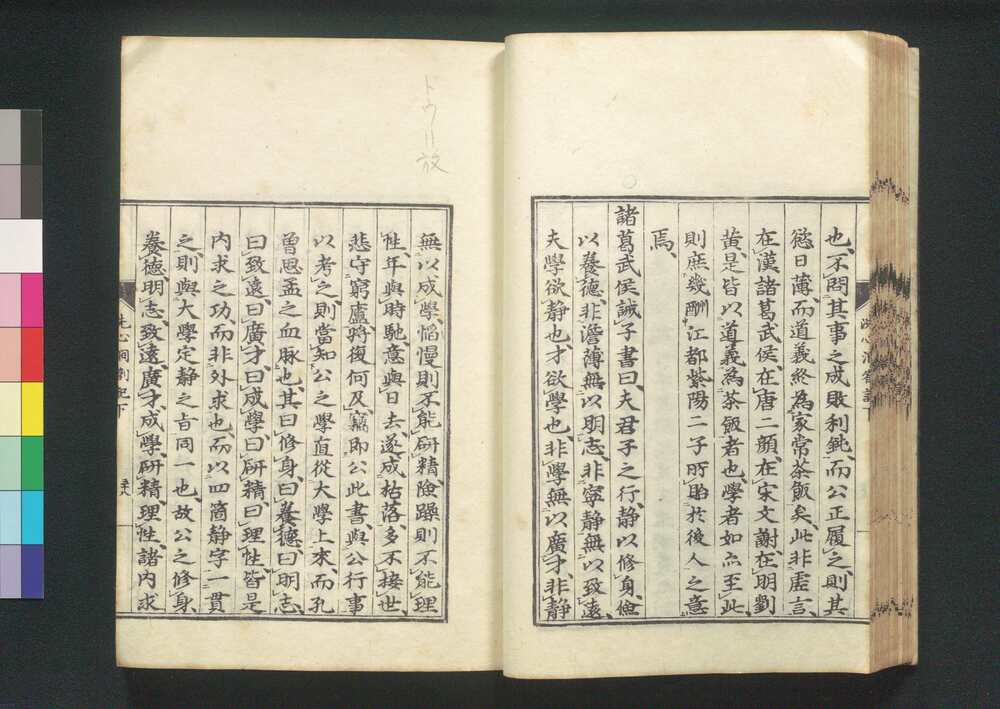 也、不問其事之成敗利鈍、而公正履之、則其
慾日薄、而道義終為家常茶飯矣、此非虛言、
在漢諸葛武侯、在唐二顔、在宋文謝、在明劉
黄是皆以道義為茶飯者也、學者如亦至此、
則庶幾酬江都紫陽二子所貽於後人之意
焉、
諸葛武侯誡子書曰、夫君子之行、静以修身、儉
以養德、非澹薄無以明志、非寧静無以致遠、
夫學欲静也、才欲學也、非學無以廣才、非静
無以成學、慆慢則不能研精、險躁則不能理
性、年與時馳、意與日去、遂成枯落、多不接世、
悲守窮廬、將復何及、竊即公此書、與公行事
以考之、則當知公之學直從大學上來、而孔
曾思孟之血脉也、其曰修身、曰養德、曰明志
曰致遠、曰廣才、曰成學、曰研精、曰理性、皆是
内求之功、而非外求也、而以四箇静字一貫
之、則與大學定静之旨同一也、故公之修身
養德明志致遠、廣才成學研精理性、諸内求
洗心洞劄記下
ドウハ放